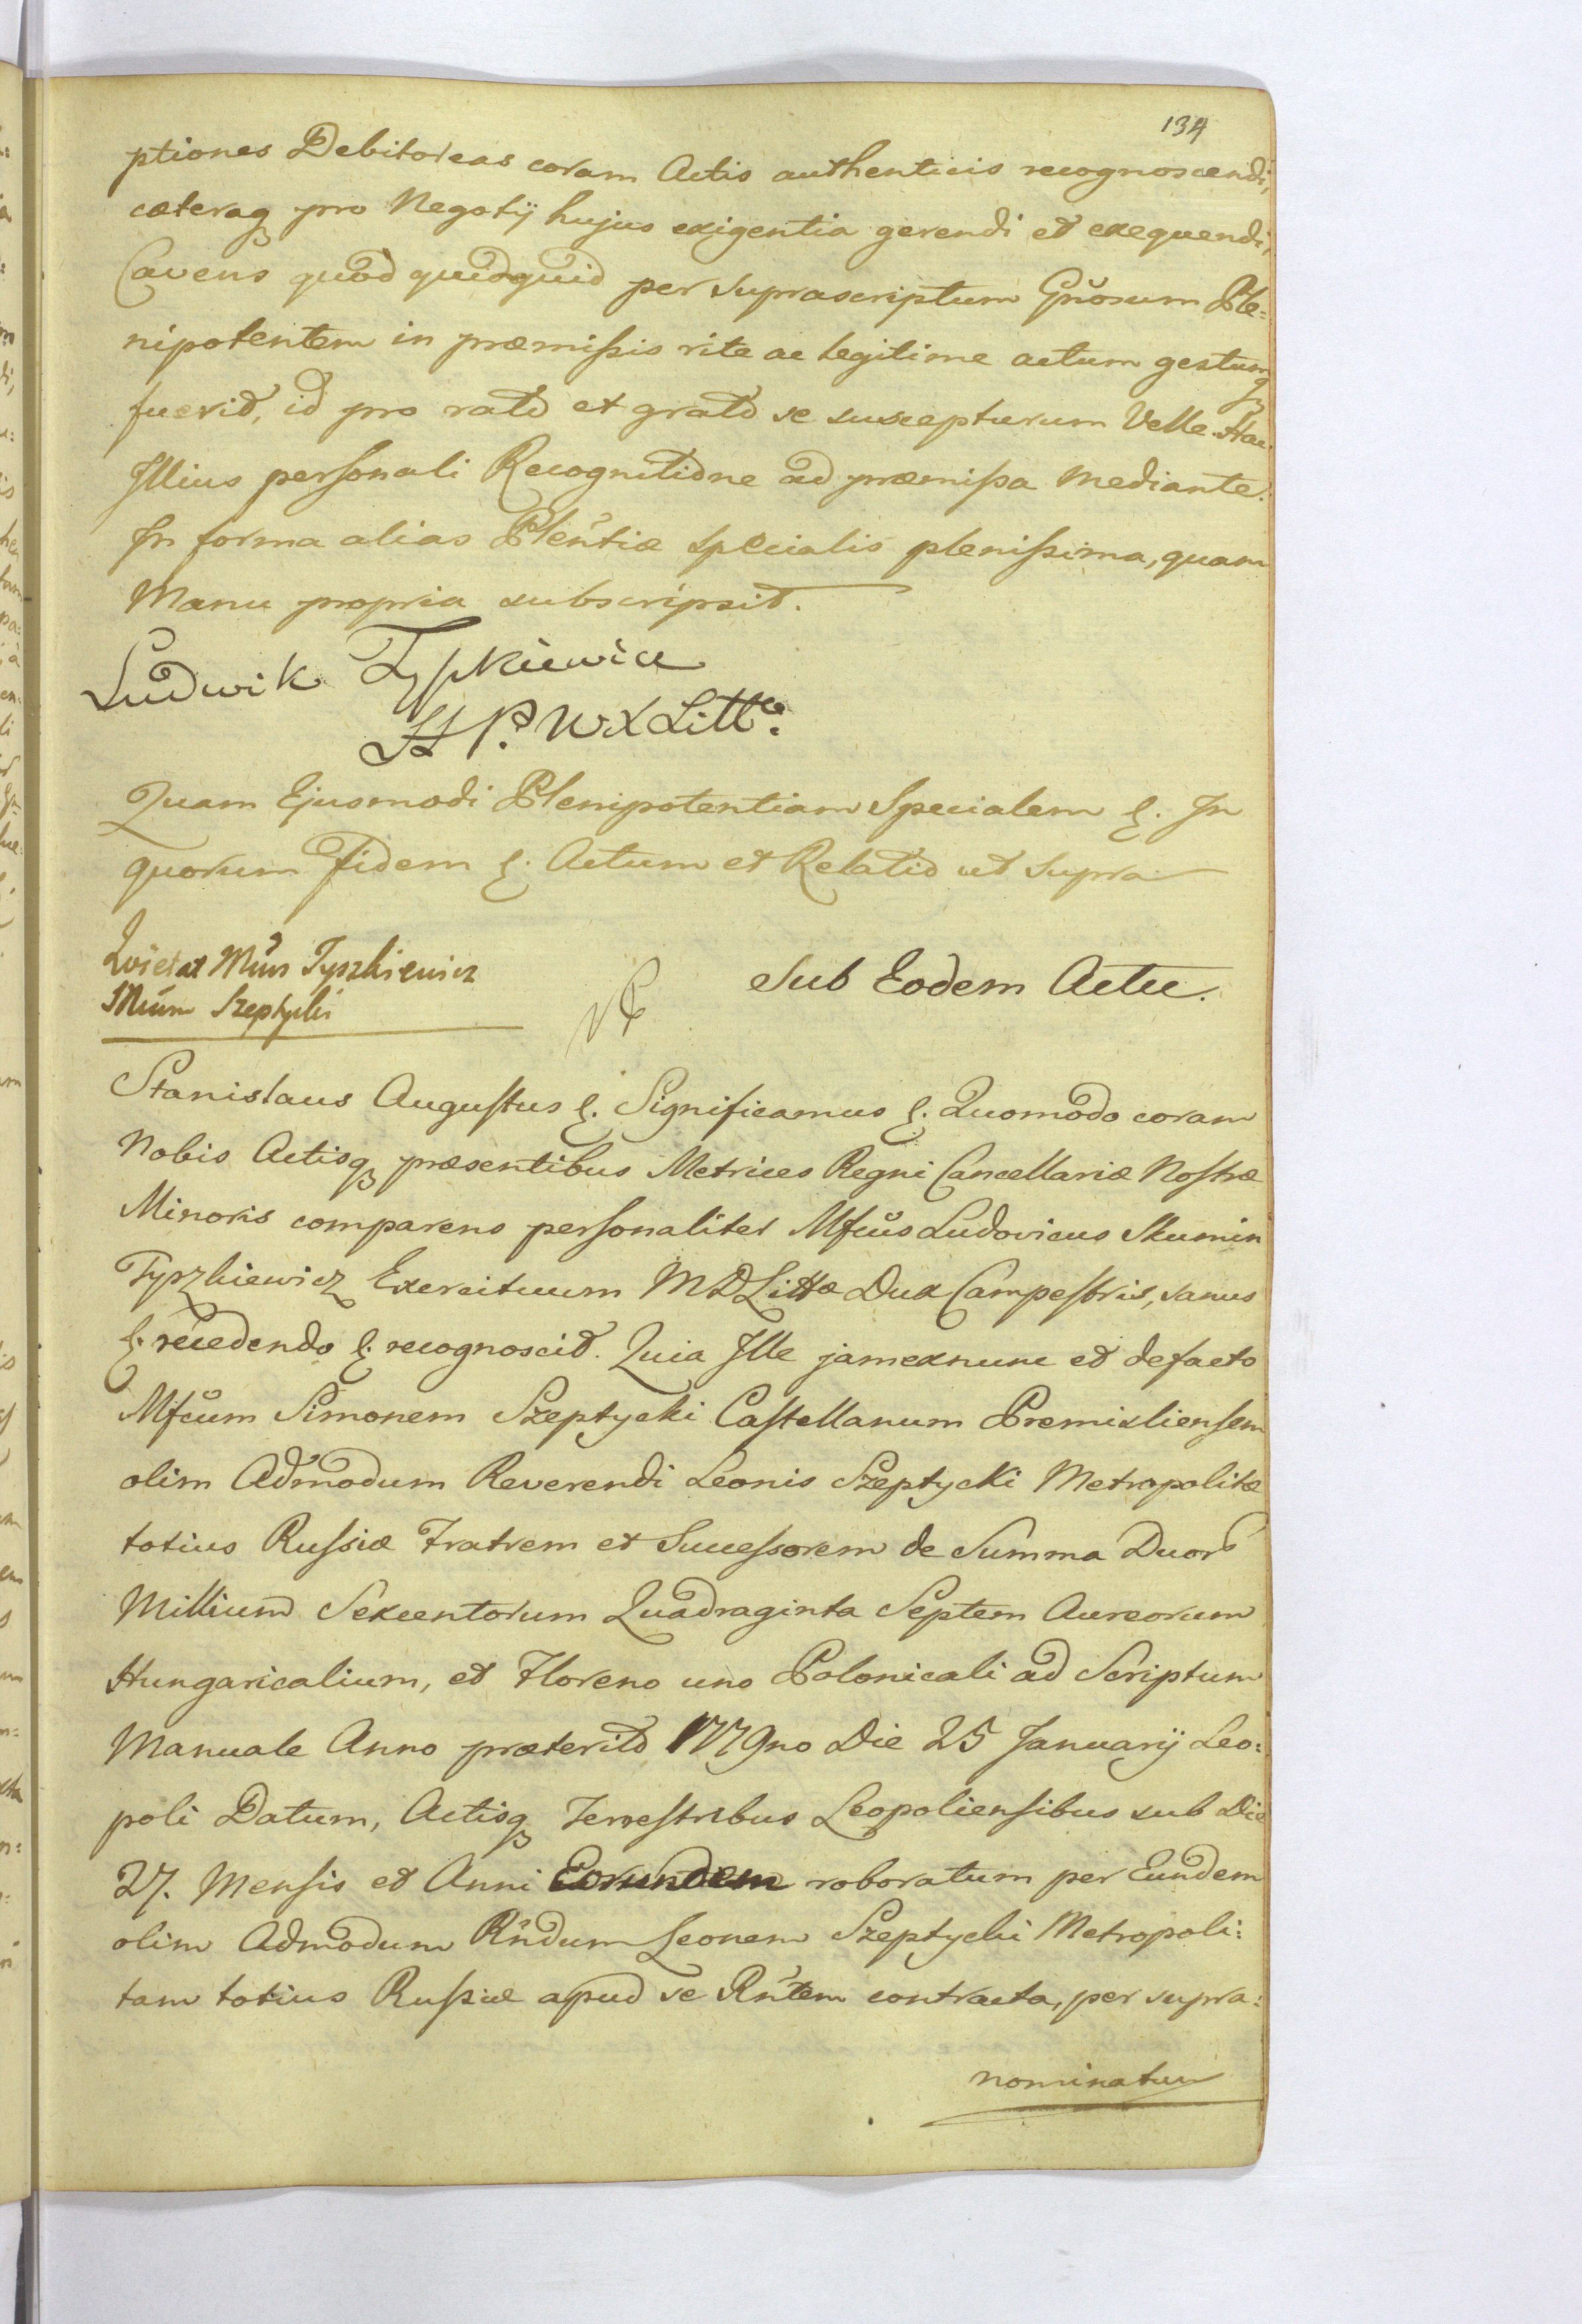 134
ptiones Debitoreas coram Actis authenticis recognoscendi,
cæteraq₃ pro Negotÿ hujus exigentia gerendi et exequendi,
Cavens quod quidquid per suprascriptum Gn̄osum Ple=
nipotentem in præmißis rite ac legitime actum gestumq₃
fuerit, id pro rato et grato se suscepturum Velle. Hac
Illius personali Recognitione ad præmißa mediante.
In forma alias Plen̄tiæ specialis plenißima, quam
Manu propria subscripsit.
Ludwik Tyszkiewicz
H P. W X Litt.
Quam Ejusmodi Plenipotentiam Specialem &. In
quorum Fidem &. Actum et Relatio ut supra
Qvietat Mn̄us Tyszkiewicz
Mn̄um Szeptycki
Sub Eodem Actu.
Stanislaus Augustus &. Significamus &. Quomodo coram
Nobis Actisq₃ præsentibus Metrices Regni Cancellariæ Nostræ
Minoris comparens personaliter Mfcus Ludovicus Skumin
Tyszkiewicz Exercituum MDLittæ Dux Campestris, sanus
&. recedendo &. recognoscit. Quia Ille jamexnunc et defacto
Mfcum Simonem Szeptycki Castellanum Premisliensem
olim Admodum Reverendi Leonis Szeptycki Metropolitæ
totius Russiæ Fratrem et Successorem de Summa Duor
Millium Sexcentorum Quadraginta Septem Aureorum
Hungaricalium, et Floreno uno Polonicali ad Scriptum
Manuale Anno præterito 1779no Die 25 Januarÿ Leo=
poli Datum, Actisq₃ Terrestribus Leopoliensibus sub Die
27. Mensis et Anni Eorundem roboratum per Eundem
olim Admodum Rn̄dum Leonem Szeptycki Metropoli=
tam totius Rußiæ apud se Rn̄tem contracta, per supra=
nominatum